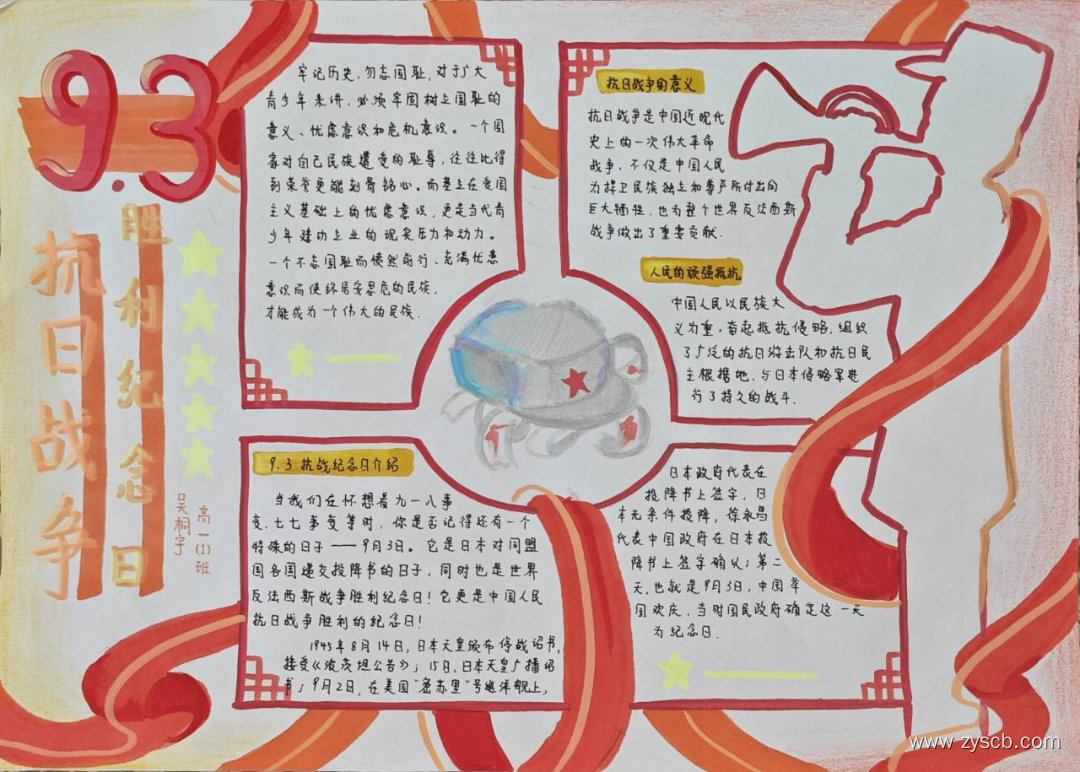 9.3
抗日战争
胜利纪念日
高一(1)班
吴桐宇
牢记历史,勿忘国耻,对于广大
青少年来讲,必须牢固树立国耻的
意义、忧虑意识和危机意识。一个国
家对自己民族遭受的耻辱,往往比得
到荣誉更能刻骨铭心。而建立在爱国
主义基础上的忧虑意识,更是当代青
少年建功立业的现实压力和动力。
一个不忘国耻而愤然前行、充满忧患
意识而使终居安思危的民族,
才能成为一个伟大的民族.
抗日战争的意义
抗日战争是中国近现代
史上的一次伟大革命
战争,不仅是中国人民
为捍卫民族独立和尊严所付出的
巨大牺牲,也为整个世界反法西斯
战争做出了重要贡献.
人民的顽强抵抗
中国人民以民族大
义为重,奋起抵抗侵略,组织
了广泛的抗日游击队和抗日民
主根据地,与日本侵略军进
行了持久的战斗.
9.3 抗战纪念日介绍
当我们在怀想着九一八事
变、七七事变等时,你是否记得还有一个
特殊的日子——9月3日。它是日本对同盟
国各国递交投降书的日子,同时也是世界
反法西斯战争胜利纪念日!它更是中国人民
抗日战争胜利的纪念日!
1945年8月14日,日本天皇颁布停战诏书,
接受《波茨坦公告》;15日,日本天皇广播诏
书;9月2日,在美国“密苏里”号巡洋舰上,
日本政府代表在
投降书上签字,日
本无条件投降,徐永昌
代表中国政府在日本投
降书上签字确认;第二
天,也就是9月3日,中国举
国欢庆,当时国民政府确定这一天
为纪念日.
www.zyscb.com